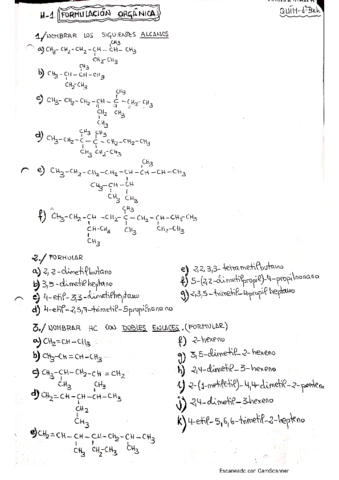 H-1 FORMULACIÓN ORGÁNICA
1./ NOMBRAR LOS SIGUIENTES ALCANOS
a) CH3-CH2-CH2-CH-CH-CH3
CH3
CH2-CH3
b) CH3-CH-CH-CH3
CH3
CH2-CH3
c) CH3-CH2-CH2-CH-C-CH2-CH3
CH3
CH2 CH3
CH3
d) CH3-CH2-C-C-CH2-CH2-CH3
CH3 CH3
CH3 CH2-CH3
e) CH3-CH2-CH2-CH2-CH-CH-CH-CH3
CH3
CH3-CH-CH
CH3 CH3
f) CH3-CH2-CH-CH2-C-CH2-CH-CH2-CH3
CH3
CH-CH3
CH3
2./ FORMULAR
a) 2,2-dimetilbutano
b) 3,5-dimetilheptano
c) 4-etil-3,3-dimetilheptano
d) 4-etil-2,5,7-trimetil-5propilnonano
e) 2,2,3,3-tetrametilbutano
f) 5-(2,2-dimetilpropil)-4-propilnonano
g) 2,3,5-trimetil-4propilheptano
3./ NOMBRAR HC CON DOBLES ENLACES. (FORMULAR)
a) CH2=CH-CH3
b) CH3-CH=CH-CH3
c) CH3-CH-CH2-CH=CH2
CH3
d) CH2=CH-CH-CH2-CH-CH3
CH3
CH2
CH2
CH3
e) CH2=CH-CH-CH-CH2-CH-CH3
CH3 CH2-CH3 CH3
f) 2-hexeno
g) 3,5-dimetil-2-hexeno
h) 2,4-dimetil-3-hexeno
i) 2-(1-metiletil)-4,4-dimetil-2-penteno
j) 2,4-dimetil-3hexeno
k) 4-etil-5,6,6-trimetil-2-hepteno
Escaneado con CamScanner